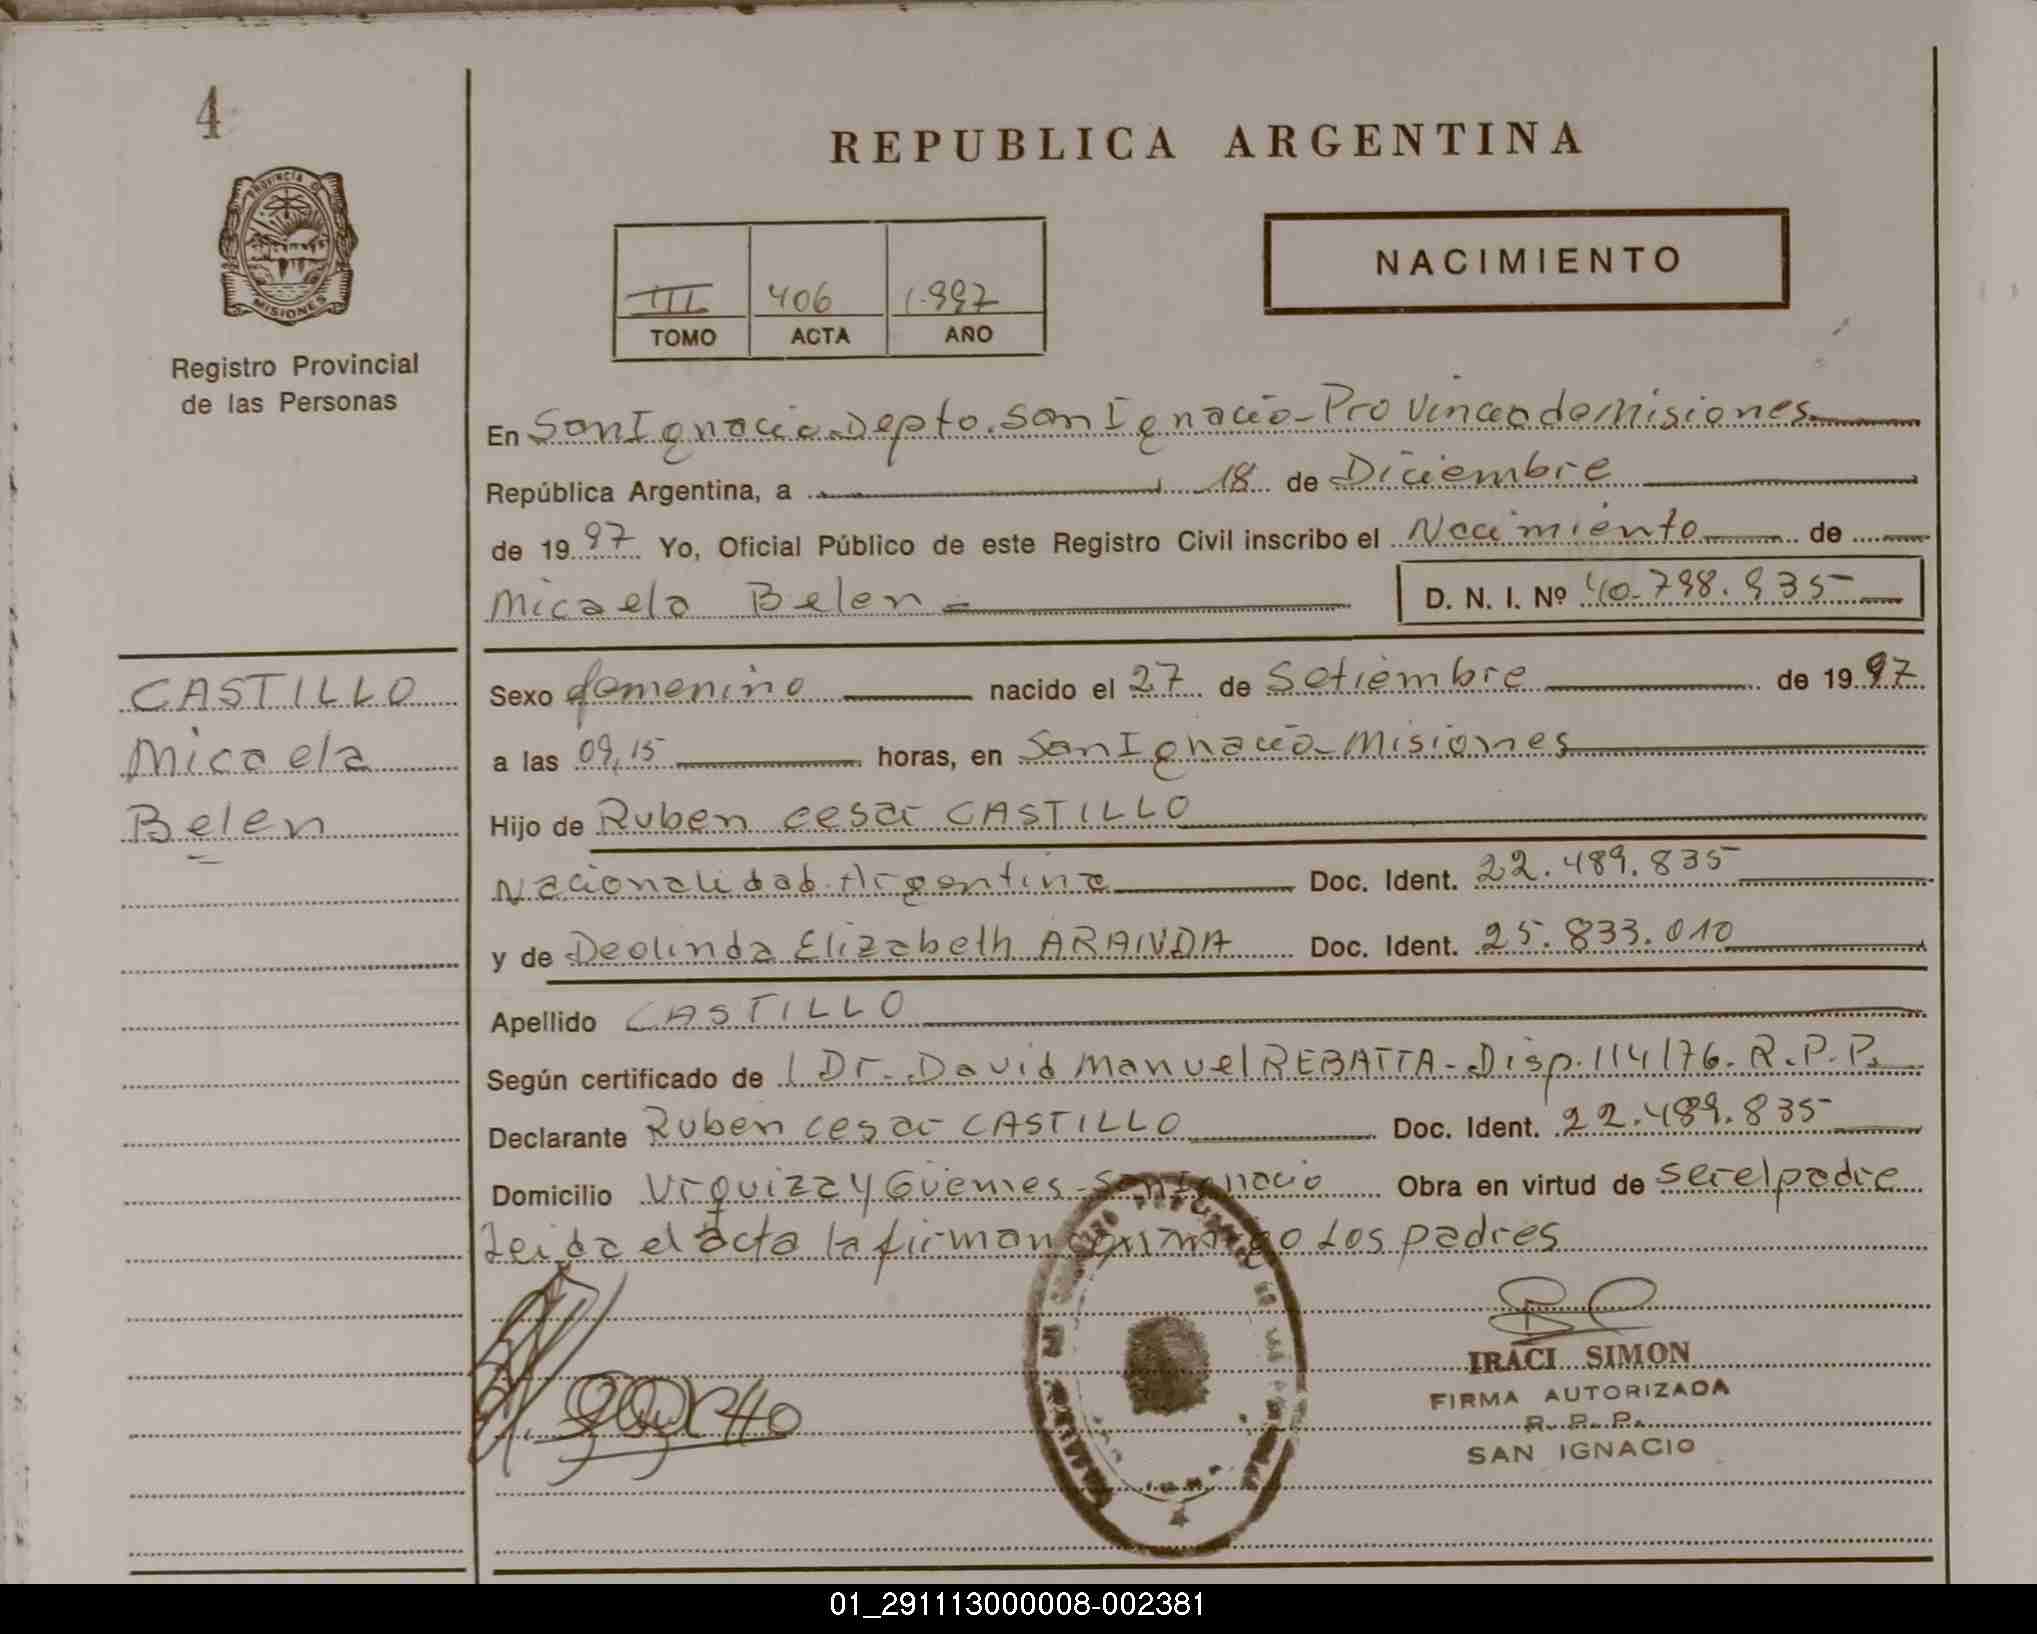 4
REPUBLICA ARGENTINA
PROVINCIA DE
MISIONES
Registro Provincial
de las Personas
NACIMIENTO
III 406 1.997
TOMO ACTA AÑO
En San Ignacio Depto. San Ignacio - Provincia de Misiones
República Argentina, a 18 de Diciembre
de 1997 Yo, Oficial Público de este Registro Civil inscribo el Nacimiento de
Micaela Belen D. N. I. Nº 40.798.935
CASTILLO
Micaela
Belen
Sexo femenino nacido el 27 de Setiembre de 1997
a las 09,15 horas, en San Ignacio - Misiones
Hijo de Ruben Cesar CASTILLO
Nacionalidad Argentina Doc. Ident. 22.489.835
y de Deolinda Elizabeth ARANDA Doc. Ident. 25.833.010
Apellido CASTILLO
Según certificado de l Dr. David Manuel REBATTA - Disp. 114/76. R.P.P.
Declarante Ruben Cesar CASTILLO Doc. Ident. 22.489.835
Domicilio Urquiza y Güemes - San Ignacio Obra en virtud de ser el padre
Leida el acta la firman conmigo Los padres
IRACI SIMON
FIRMA AUTORIZADA
R. P. P.
SAN IGNACIO
01_291113000008-002381